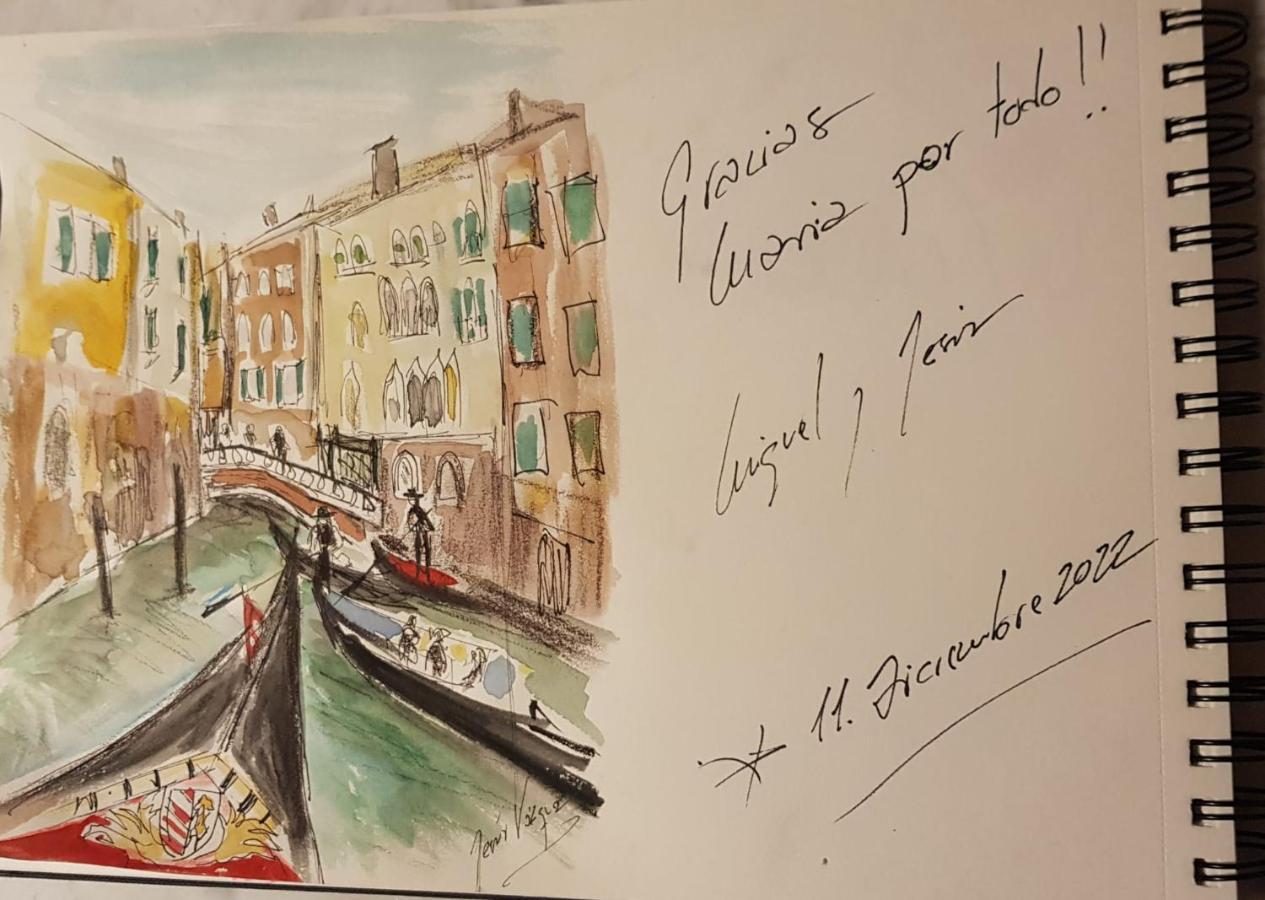 Gracias
Maria por todo!!
Miguel y Jesús
11. Diciembre 2022
Jesús Vázquez